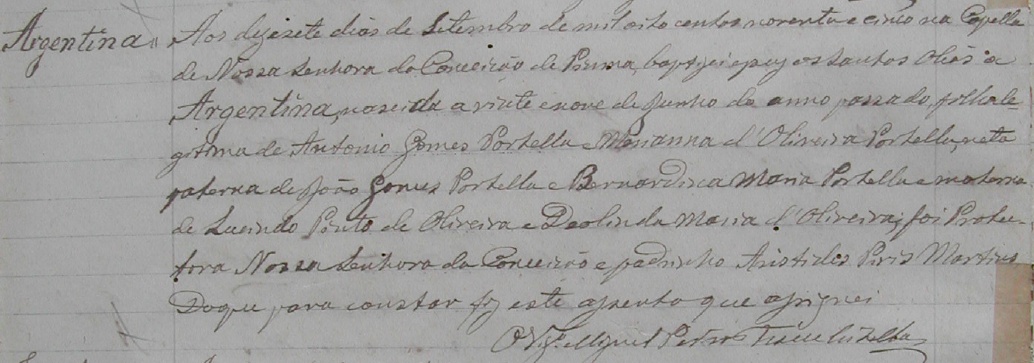 Argentina Aos dezesete dias de Setembro de mil oito centos noventa e cinco na Capella
de Nossa Senhora da Conceição de baptizei e puz os Santos Oleos a
Argentina, nascida a vinte e nove de Junho do anno passado, filha le-
gitima de Antonio Gomes Portella e Marianna d'Oliveira Portella, neta
paterna de João Gomes Portella e Bernardina Maria Portella e materna
de Lucindo Pinto de Oliveira e Deolinda Maria d'Oliveira; foi Protec-
tora Nossa Senhora da Conceição e padrinho Aristides Piris Martins
Do que para constar fiz este assento que assignei
O Vigº Miguel Pedro